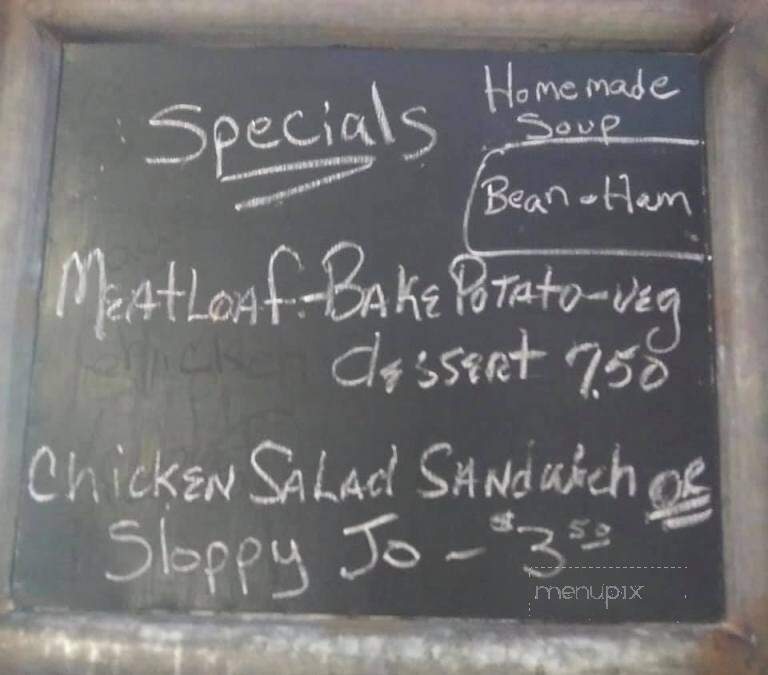 Specials
Homemade
Soup
Bean - Ham
MEATLOAF - BAKE POTATO - VEG
dessert 7.50
Chicken SALAd SANdwich OR
Sloppy Jo - $3 50
menupix